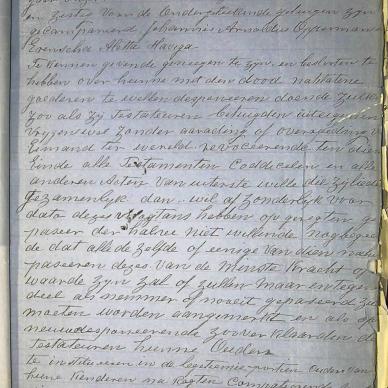 In Presentie van de Ondergetekende getuigen zyn
gecompareerd Johannis Arnoldus Opperman
Te kennen gevende genegen te zyn en besloten te
hebben over hunne met den dood natelatene
goederen te willen desponeeren doende zulks
zoo als zij Testateuren betuigden uit eigen
vryen wil zonder aarading of overreding v
Eimand ter wereld revoceerende ten dien
Einde alle Testamenten Coddecelen en alle
anderen Acten van uiterste wille die zij bied
Gezamenlyk dan wel afzonderlyk voor
dato dezes hebben op gerecten of
paseer der halve niet willende
de dat alle de zelfde of eenige van dien nade
paseren dezes van de Minste Kracht of
waarde zyn zal of zullen Maar integen
deel als nemmer of nooit gepaseerd zu
moeten worden aangemerkt en als op
neuw desponeerende zoo verklaarden de
Testateuren hunne Ouders
te institueeren en de legitieme portien
hune Kenderen na Regten